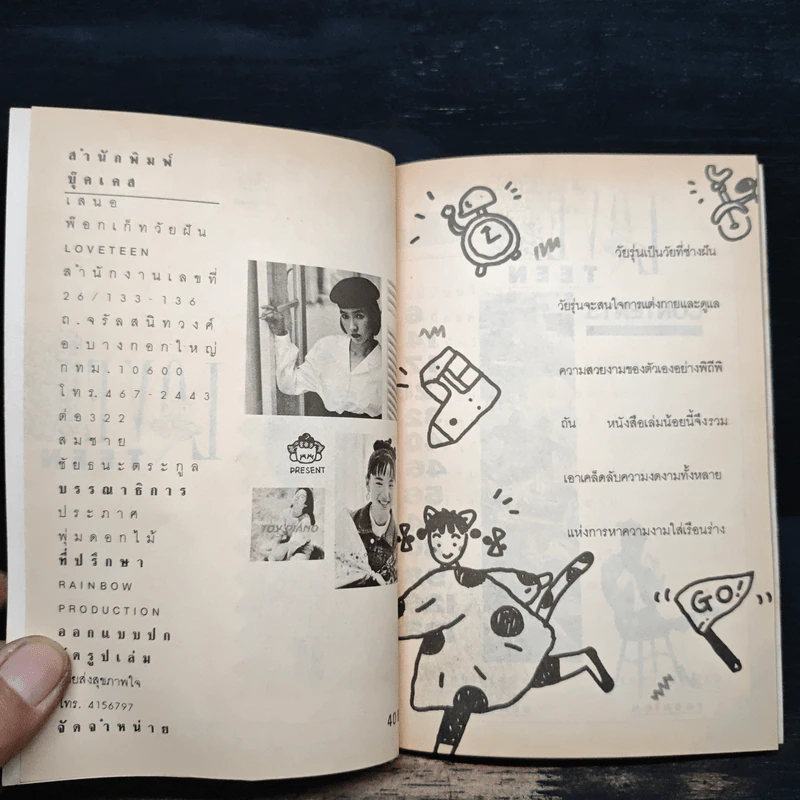 สำนักพิมพ์
บุ๊คเคส
เสนอ
พ๊อกเก็ทวัยฝัน
LOVETEEN
สำนักงานเลขที่
26/133-136
ถ.จรัลสนิทวงศ์
อ.บางกอกใหญ่
กทม.10600
โทร.467-2443
ต่อ322
สมชาย
ชัยธนะตระกูล
บรรณาธิการ
ประภาศ
พุ่มดอกไม้
ที่ปรึกษา
RAINBOW
PRODUCTION
ออกแบบปก
รูปเล่ม
ส่งสุขภาพใจ
โทร. 4156797
จัดจำหน่าย
PRESENT
TOY PIANO
2
วัยรุ่นเป็นวัยที่ช่างฝัน
วัยรุ่นจะสนใจการแต่งกายและดูแล
ความสวยงามของตัวเองอย่างพิถีพิ
ถัน หนังสือเล่มน้อยนี้จึงรวม
เอาเคล็ดลับความงดงามทั้งหลาย
แห่งการหาความงามใส่เรือนร่าง
GO!